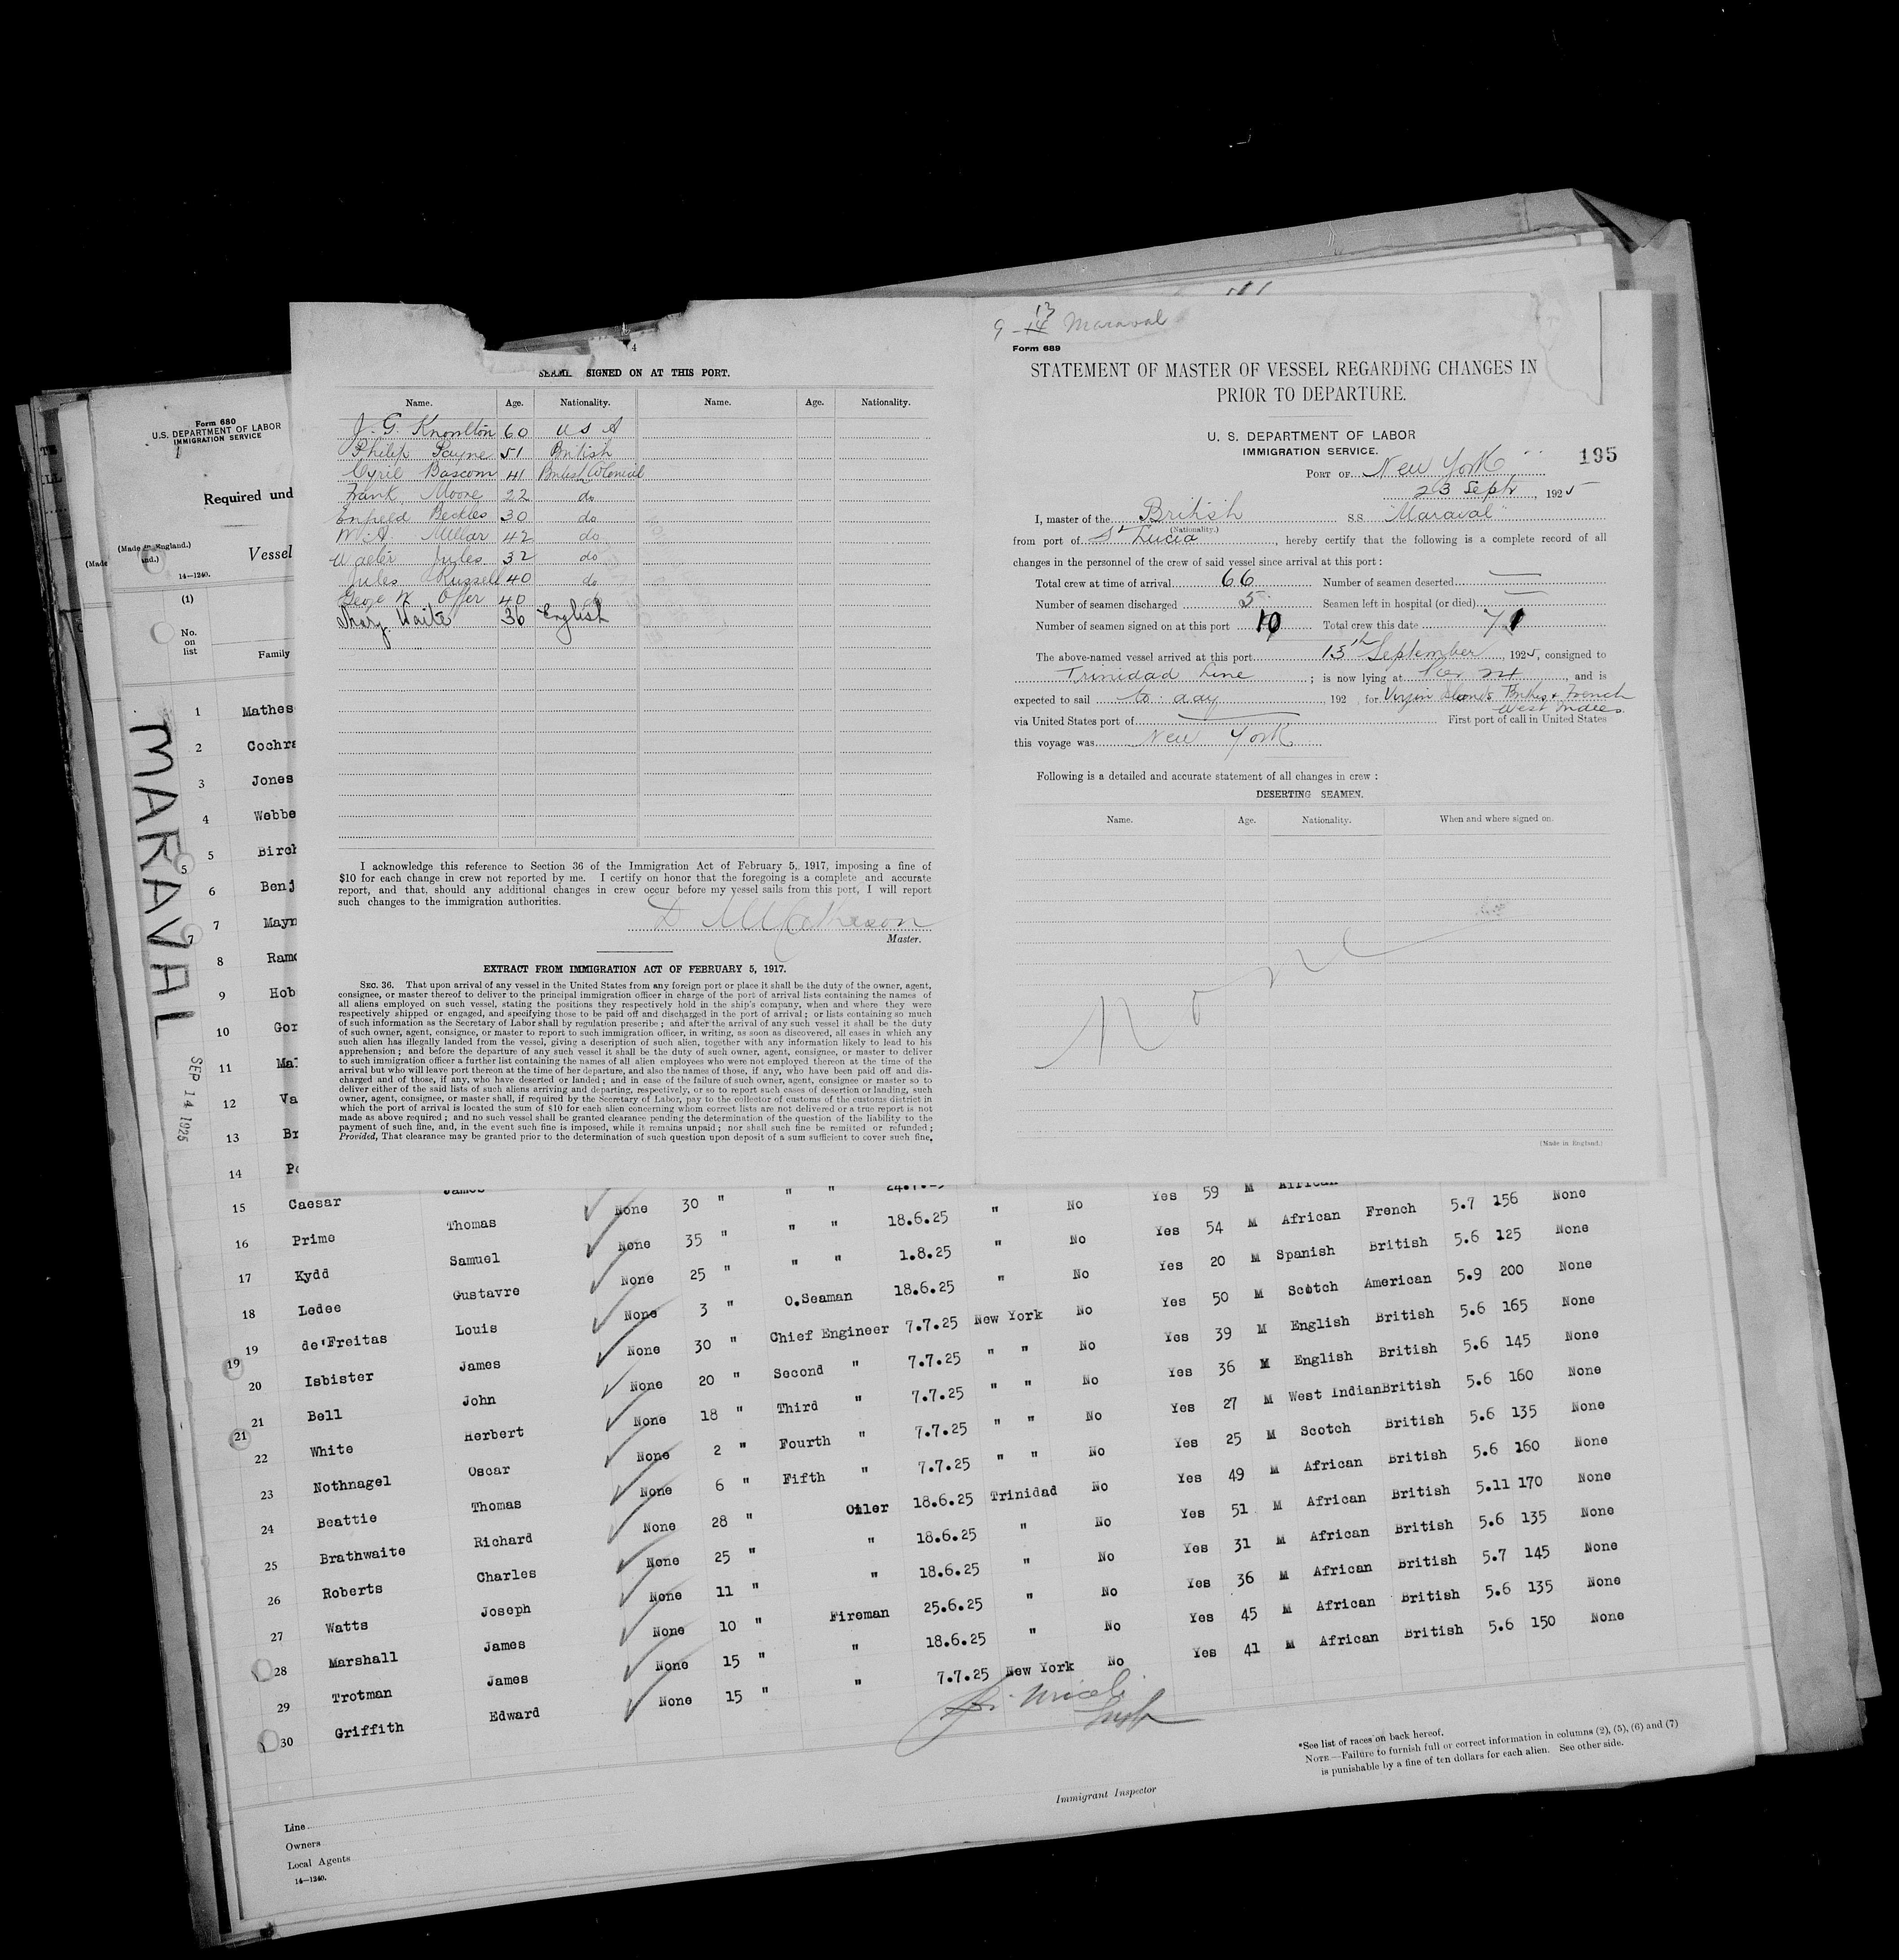 9-14 13 Maraval
4
SIGNED ON AT THIS PORT.
Name. Age. Nationality. Name. Age. Nationality.
J. G. Knowlton 60 U S A
Philip Payne 51 British
Cyril Bascom 41 British Colonial
Frank Moore 22 do
Enfield Beckles 30 do
M. A. Millar 42 do
Walter Jules 32 do
Jules Russell 40 do
George W Offer 40 do
Mary Waite 36 English
I acknowledge this reference to Section 36 of the Immigration Act of February 5, 1917, imposing a fine of
$10 for each change in crew not reported by me. I certify on honor that the foregoing is a complete and accurate
report, and that, should any additional changes in crew occur before my vessel sails from this port, I will report
such changes to the immigration authorities.
D McMatheson
Master.
EXTRACT FROM IMMIGRATION ACT OF FEBRUARY 5, 1917.
SEC. 36. That upon arrival of any vessel in the United States from any foreign port or place it shall be the duty of the owner, agent,
consignee, or master thereof to deliver to the principal immigration officer in charge of the port of arrival lists containing the names of
all aliens employed on such vessel, stating the positions they respectively hold in the ship's company, when and where they were
respectively shipped or engaged, and specifying those to be paid off and discharged in the port of arrival; or lists containing so much
of such information as the Secretary of Labor shall by regulation prescribe; and after the arrival of any such vessel it shall be the duty
of such owner, agent, consignee, or master to report to such immigration officer, in writing, as soon as discovered, all cases in which any
such alien has illegally landed from the vessel, giving a description of such alien, together with any information likely to lead to his
apprehension; and before the departure of any such vessel it shall be the duty of such owner, agent, consignee, or master to deliver
to such immigration officer a further list containing the names of all alien employees who were not employed thereon at the time of the
arrival but who will leave port thereon at the time of her departure, and also the names of those, if any, who have been paid off and dis-
charged and of those, if any, who have deserted or landed; and in case of the failure of such owner, agent, consignee or master so to
deliver either of the said lists of such aliens arriving and departing, respectively, or so to report such cases of desertion or landing, such
owner, agent, consignee, or master shall, if required by the Secretary of Labor, pay to the collector of customs of the customs district in
which the port of arrival is located the sum of $10 for each alien concerning whom correct lists are not delivered or a true report is not
made as above required; and no such vessel shall be granted clearance pending the determination of the question of the liability to the
payment of such fine, and, in the event such fine is imposed, while it remains unpaid; nor shall such fine be remitted or refunded;
Provided, That clearance may be granted prior to the determination of such question upon deposit of a sum sufficient to cover such fine,
Form 689
STATEMENT OF MASTER OF VESSEL REGARDING CHANGES IN
PRIOR TO DEPARTURE.
U. S. DEPARTMENT OF LABOR
IMMIGRATION SERVICE.
195
PORT OF New York
23 Sept, 1925
I, master of the British S.S. "Maraval"
(Nationality.)
from port of St Lucia, hereby certify that the following is a complete record of all
changes in the personnel of the crew of said vessel since arrival at this port:
Total crew at time of arrival 66 Number of seamen deserted
Number of seamen discharged 5 Seamen left in hospital (or died)
Number of seamen signed on at this port 10 Total crew this date 71
The above-named vessel arrived at this port 13th September, 1925, consigned to
Trinidad Line; is now lying at Pier 24, and is
expected to sail to-day, 192 , for Virgin Islands British & French
West Indies
via United States port of First port of call in United States
this voyage was New York
Following is a detailed and accurate statement of all changes in crew:
DESERTING SEAMEN.
Name. Age. Nationality. When and where signed on.
None
(Made in England.)
Form 680
U.S. DEPARTMENT OF LABOR
IMMIGRATION SERVICE
Required und
(Made in England.)
(Made
Vessel
14—1240.
(1)
No. on list
Family
MARAVAL
SEP 14 1925
1 Mathes
2 Cochra
3 Jones
4 Webbe
5 Birch
6 Benj
7 Mayn
8 Ramo
9 Hob
10 Gor
11 Mal
12 Va
13 Br
14 Po
15 Caesar James None 30 " " " 24.7.25 " No Yes 59 M African
16 Prime Thomas None 35 " " " 18.6.25 " No Yes 54 M African French 5.7 156 None
17 Kydd Samuel None 25 " " " 1.8.25 " No Yes 20 M Spanish British 5.6 125 None
18 Ledee Gustavre None 3 " O.Seaman 18.6.25 " No Yes 50 M Scotch American 5.9 200 None
19 de'Freitas Louis None 30 " Chief Engineer 7.7.25 New York No Yes 39 M English British 5.6 165 None
20 Isbister James None 20 " Second " 7.7.25 " " No Yes 36 M English British 5.6 145 None
21 Bell John None 18 " Third " 7.7.25 " " No Yes 27 M West Indian British 5.6 160 None
22 White Herbert None 2 " Fourth " 7.7.25 " " No Yes 25 M Scotch British 5.6 135 None
23 Nothnagel Oscar None 6 " Fifth " 7.7.25 " " No Yes 49 M African British 5.6 160 None
24 Beattie Thomas None 28 " Oiler 18.6.25 Trinidad No Yes 51 M African British 5.11 170 None
25 Brathwaite Richard None 25 " " 18.6.25 " No Yes 31 M African British 5.6 135 None
26 Roberts Charles None 11 " " 18.6.25 " No Yes 36 M African British 5.7 145 None
27 Watts Joseph None 10 " Fireman 25.6.25 " No Yes 45 M African British 5.6 135 None
28 Marshall James None 15 " " 18.6.25 " No Yes 41 M African British 5.6 150 None
29 Trotman James None 15 " " 7.7.25 New York No
30 Griffith Edward
Immigrant Inspector
*See list of races on back hereof.
NOTE.—Failure to furnish full or correct information in columns (2), (5), (6) and (7)
is punishable by a fine of ten dollars for each alien. See other side.
Line
Owners
Local Agents
14—1240.